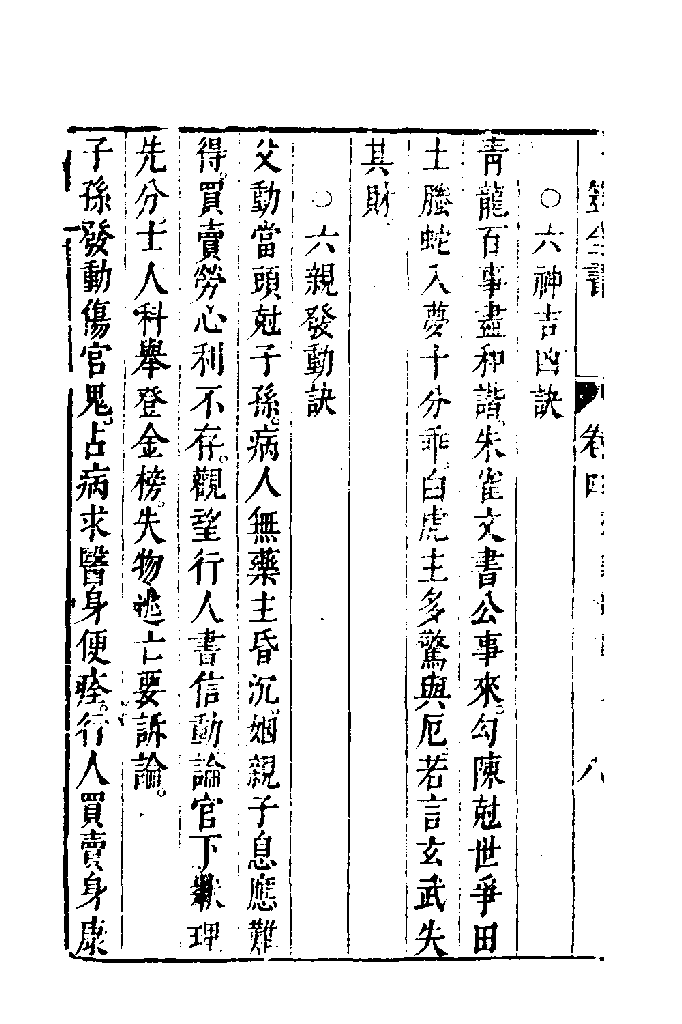 全書
卷四
八
○六神吉凶訣
青龍百事盡和諧朱雀文書公事來勾陳尅世爭田
土螣蛇入夢十分乖白虎主多驚與厄若言玄武失
其財
○六親發動訣
父動當頭尅子孫病人無藥主昏沉姻親子息應難
得買賣勞心利不存觀望行人書信動論官下狀理
先分士人科舉登金榜失物逃亡要訴論
子孫發動傷官鬼占病求醫身便痊行人買賣身康